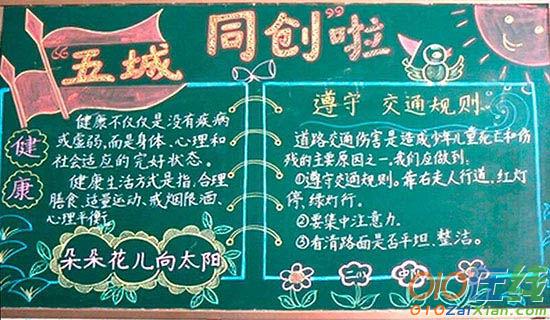 “五城同创”啦
健康
健康不仅仅是没有疾病
或虚弱,而是身体、心理和
社会适应的完好状态。
健康生活方式是指,合理
膳食、适量运动、戒烟限酒、
心理平衡。
朵朵花儿向太阳
遵守 交通规则
道路交通伤害是造成少年儿童死亡和伤
残的主要原因之一,我们应做到:
①遵守交通规则。靠右走人行道,红灯
停,绿灯行。
②要集中注意力。
③看清路面是否平坦、整洁。
二(
010在线
010zaixian.com